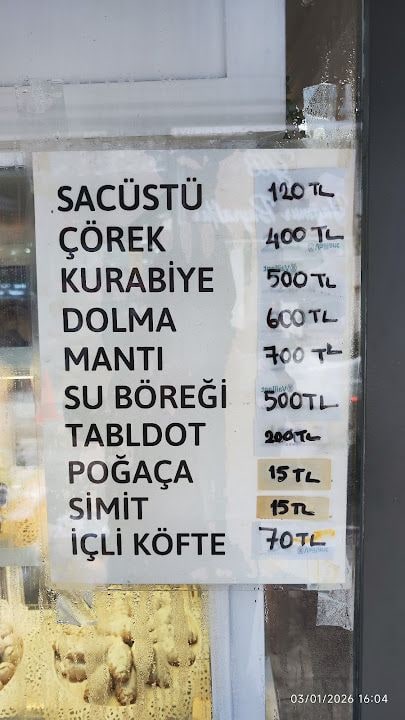 SACÜSTÜ 120 TL
ÇÖREK 400 TL
KURABİYE 500 TL
DOLMA 600 TL
MANTI 700 TL
SU BÖREĞİ 500TL
TABLDOT 200TL
POĞAÇA 15 TL
SİMİT 15 TL
İÇLİ KÖFTE 70 TL
03/01/2026 16:04